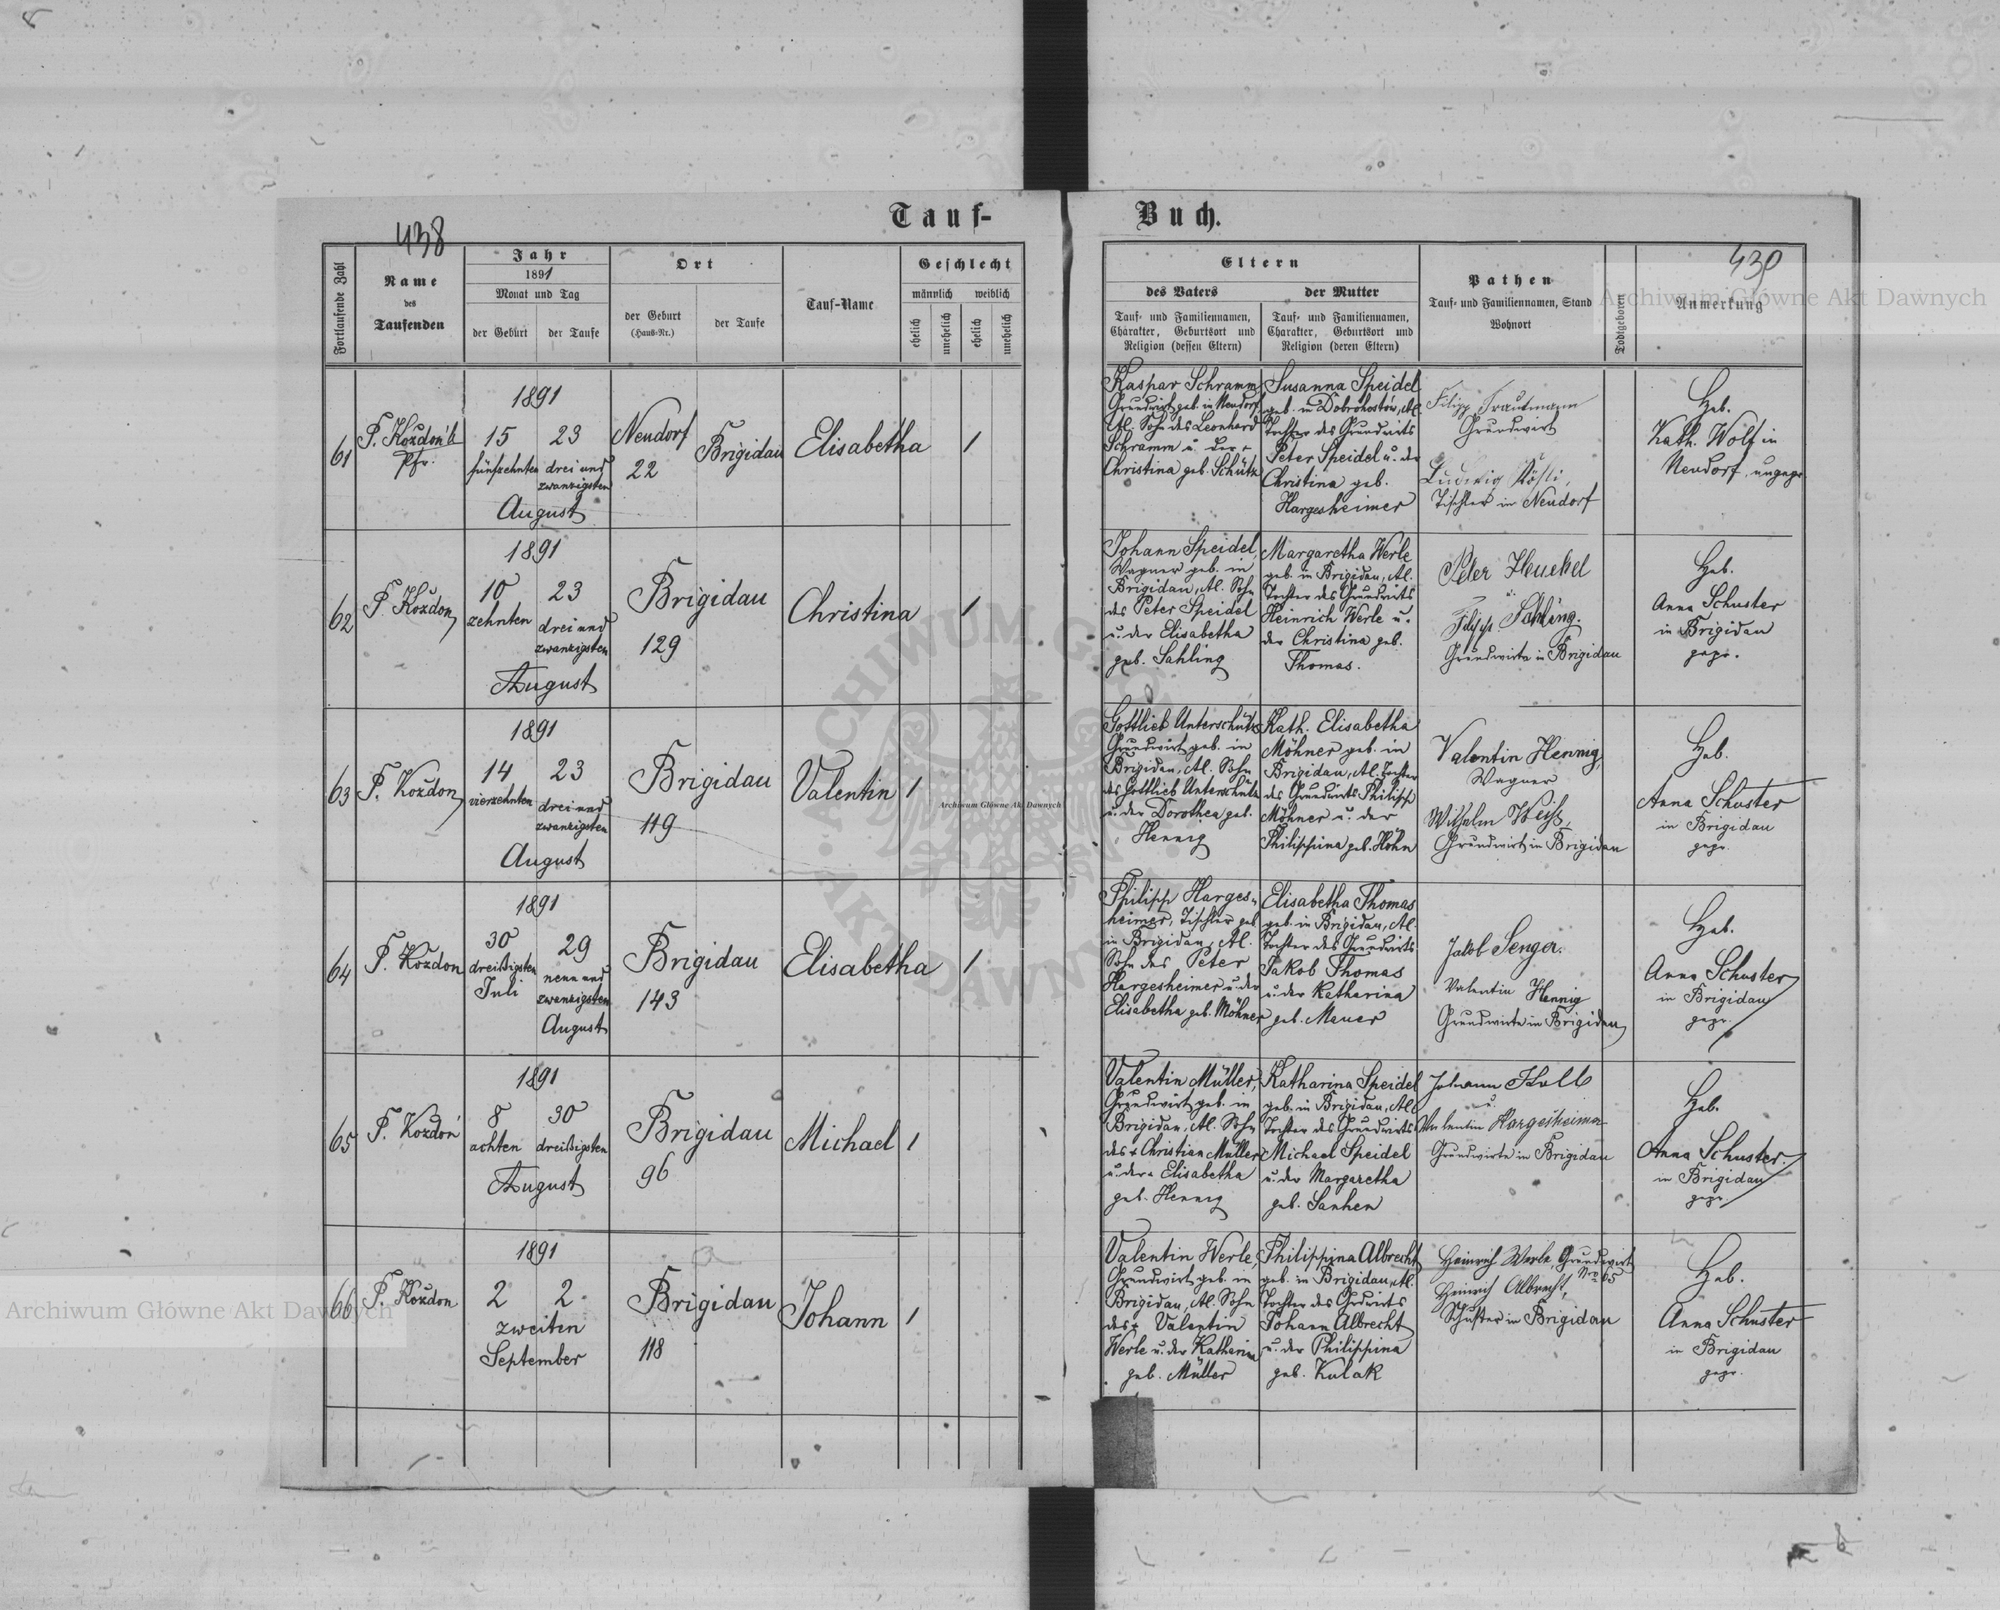 Tauf-
Buch.
438
439
Fortlaufende Zahl
Name
des
Taufenden
Jahr
1891
Monat und Tag
der Geburt
der Taufe
Ort
der Geburt
(Haus-Nr.)
der Taufe
Tauf-Name
Geschlecht
männlich
weiblich
ehelich
unehelich
ehelich
unehelich
Eltern
des Vaters
der Mutter
Tauf- und Familiennamen,
Charakter, Geburtsort und
Religion (dessen Eltern)
Tauf- und Familiennamen,
Charakter, Geburtsort und
Religion (deren Eltern)
Pathen
Tauf- und Familiennamen, Stand
Wohnort
Todtgeboren
Anmerkung
61
Pfr.
1891
15
fünfzehnten
23
drei und
zwanzigsten
August
Neudorf
22
Brigidau
Elisabetha
1
Kaspar Schramm
Grundwirt geb. in Neudorf
Al. Sohn des Leonhard
Schramm u. der
Christina geb. Schütz
Susanna Speidel
geb. in Dobrohostów, Al.
Tochter des Grundwirts
Peter Speidel u. der
Christina geb.
Hargesheimer
Filipp Trautmann
Grundwirt
Ludwig
Tischler in Neudorf
Heb.
Kath. Wolf in
Neudorf, ungepr.
62
P. Kozdon
1891
10
zehnten
23
drei und
zwanzigsten
August
Brigidau
129
Christina
1
Johann Speidel,
Wagner geb. in
Brigidau, Al. Sohn
des Peter Speidel
u. der Elisabetha
geb. Sahling
Margaretha Werle
geb. in Brigidau, Al.
Tochter des Grundwirts
Heinrich Werle u.
der Christina geb.
Thomas.
Peter Henckel
u.
Filipp Sahling.
Grundwirte in Brigidau
Heb.
Anna Schuster
in Brigidau
gepr.
63
P. Kozdon
1891
14
vierzehnten
23
drei und
zwanzigsten
August
Brigidau
119
Valentin
1
Gottlieb Unterschütz
Grundwirt geb. in
Brigidau, Al. Sohn
des Gottlieb Unterschütz
u. der Dorothea geb.
Hennig
Kath. Elisabetha
Möhner geb. in
Brigidau, Al. Tochter
des Grundwirts Philipp
Möhner u. der
Philippina geb. Höhn
Valentin Hennig,
Wagner
Wilhelm Weiß,
Grundwirt in Brigidau
Heb.
Anna Schuster
in Brigidau
gepr.
64
P. Kozdon
1891
30
dreißigsten
Juli
29
neun und
zwanzigsten
August
Brigidau
143
Elisabetha
1
Philipp Harges-
heimer, Tischler geb.
in Brigidau, Al.
Sohn des Peter
Hargesheimer u. der
Elisabetha geb. Möhner
Elisabetha Thomas
geb. in Brigidau, Al.
Tochter des Grundwirts
Jakob Thomas
u. der Katharina
geb. Mauer
Jakob Senger.
Valentin Hennig
Grundwirte in Brigidau
Heb.
Anna Schuster
in Brigidau
gepr.
65
P. Kozdoń
1891
8
achten
30
dreißigsten
August
Brigidau
96
Michael
1
Valentin Müller,
Grundwirt geb. in
Brigidau, Al. Sohn
des + Christian Müller
u. der Elisabetha
geb. Hennig
Katharina Speidel
geb. in Brigidau, Al.
Tochter des Grundwirts
Michael Speidel
u. der Margaretha
geb. Sanken
Johann Kolb
u.
Valentin Hargesheimer
Grundwirte in Brigidau
Heb.
Anna Schuster
in Brigidau
gepr.
66
P. Kozdon
1891
2
2
zweiten
September
Brigidau
118
Johann
1
Valentin Werle,
Grundwirt geb. in
Brigidau, Al. Sohn
des + Valentin
Werle u. der Katharina
geb. Müller
Philippina Albrecht
geb. in Brigidau, Al.
Tochter des Grdwirts
Johann Albrecht
u. der Philippina
geb. Kulak
Heinrich Werle, Grundwirt
No 65
Heinrich Albrecht,
Schuster in Brigidau
Heb.
Anna Schuster
in Brigidau
gepr.
Archiwum Główne Akt Dawnych
Archiwum Główne Akt Dawnych
Archiwum Główne Akt Dawnych